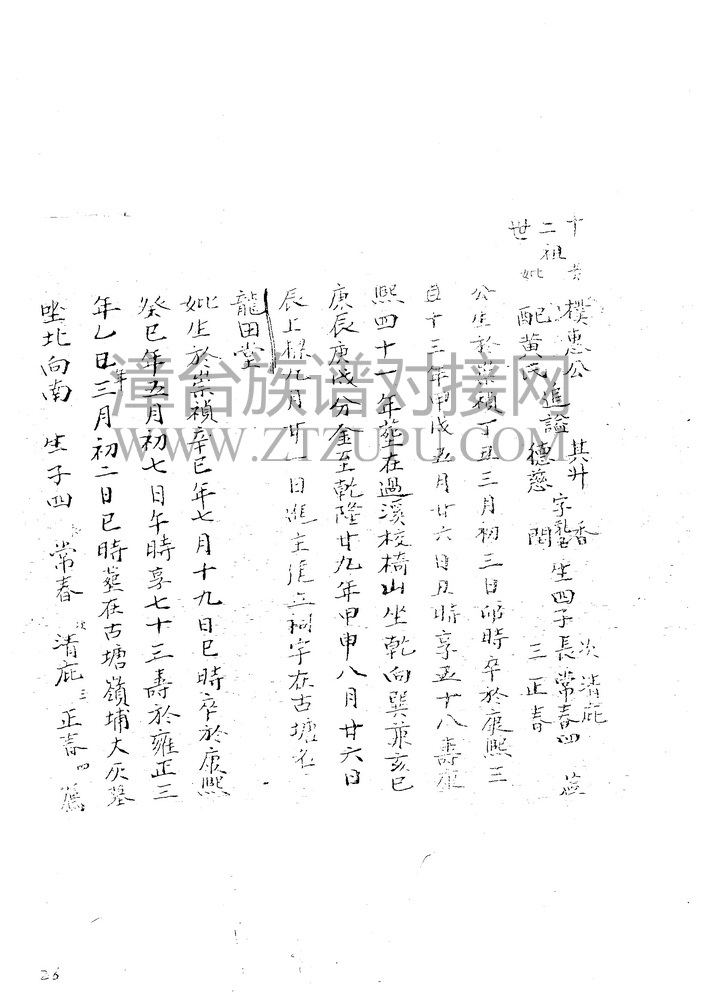 十二世
祖
妣
樸惠公 進 其升 字 生四子長常春四
配黃氏 謚德慈 次清庇 三正春
公生於崇禎丁丑三月初三日卯時卒於康熙三
且十三年甲戌五月廿六日丑時享五十八壽康
熙四十一年塟在過溪校椅山坐乾向巽兼亥巳
庚辰庚戌分金至乾隆廿九年甲申八月廿六日
辰上樑九月廿一日進主崔立祠宇在古塘名
龍田堂
妣生於崇禎辛巳年七月十九日巳時卒於康熙
癸巳年五月初七日午時享七十三壽於雍正三
年乙巳年三月初二日巳時塟在古塘嶺埔大灰墓
坐北向南 生子四 常春 次清庇 三正春 四薦
漳台族谱对接网
WWW.ZTZUPU.COM
26